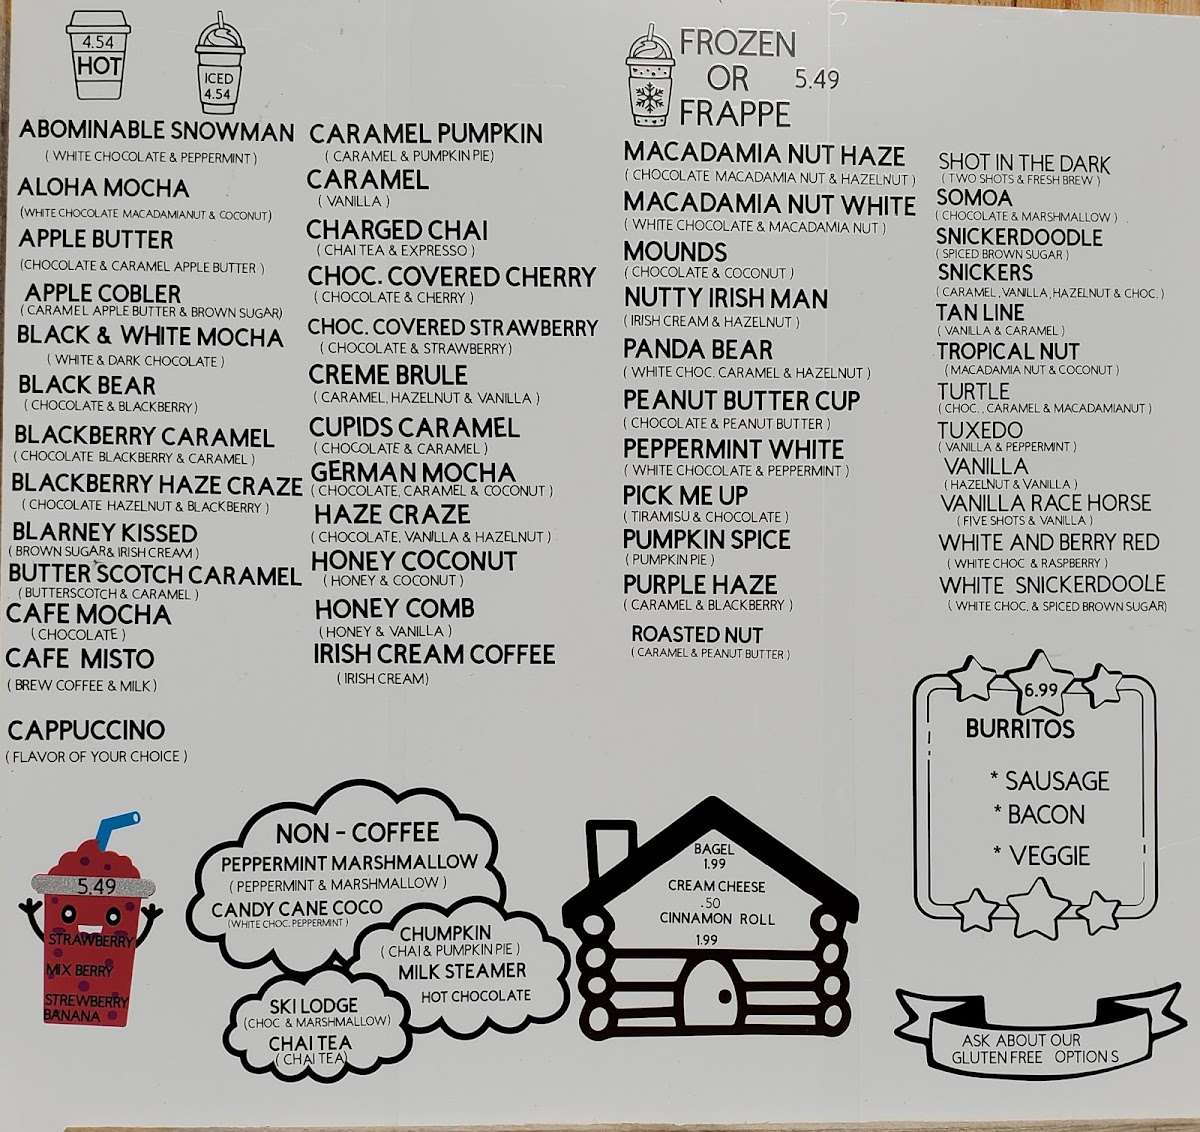 4.54
HOT
ICED
4.54
ABOMINABLE SNOWMAN
( WHITE CHOCOLATE & PEPPERMINT )
ALOHA MOCHA
(WHITE CHOCOLATE MACADAMIANUT & COCONUT)
APPLE BUTTER
(CHOCOLATE & CARAMEL APPLE BUTTER )
APPLE COBLER
( CARAMEL APPLE BUTTER & BROWN SUGAR)
BLACK & WHITE MOCHA
( WHITE & DARK CHOCOLATE )
BLACK BEAR
( CHOCOLATE & BLACKBERRY)
BLACKBERRY CARAMEL
( CHOCOLATE BLACKBERRY & CARAMEL )
BLACKBERRY HAZE CRAZE
( CHOCOLATE HAZELNUT & BLACKBERRY )
BLARNEY KISSED
( BROWN SUGAR & IRISH CREAM )
BUTTER SCOTCH CARAMEL
( BUTTERSCOTCH & CARAMEL )
CAFE MOCHA
( CHOCOLATE )
CAFE MISTO
( BREW COFFEE & MILK )
CAPPUCCINO
( FLAVOR OF YOUR CHOICE )
CARAMEL PUMPKIN
( CARAMEL & PUMPKIN PIE)
CARAMEL
( VANILLA )
CHARGED CHAI
( CHAI TEA & EXPRESSO )
CHOC. COVERED CHERRY
( CHOCOLATE & CHERRY )
CHOC. COVERED STRAWBERRY
( CHOCOLATE & STRAWBERRY )
CREME BRULE
( CARAMEL, HAZELNUT & VANILLA )
CUPIDS CARAMEL
( CHOCOLATE & CARAMEL )
GERMAN MOCHA
( CHOCOLATE, CARAMEL & COCONUT )
HAZE CRAZE
( CHOCOLATE, VANILLA & HAZELNUT )
HONEY COCONUT
( HONEY & COCONUT )
HONEY COMB
( HONEY & VANILLA )
IRISH CREAM COFFEE
( IRISH CREAM)
FROZEN
OR 5.49
FRAPPE
MACADAMIA NUT HAZE
( CHOCOLATE MACADAMIA NUT & HAZELNUT )
MACADAMIA NUT WHITE
( WHITE CHOCOLATE & MACADAMIA NUT )
MOUNDS
( CHOCOLATE & COCONUT )
NUTTY IRISH MAN
( IRISH CREAM & HAZELNUT )
PANDA BEAR
( WHITE CHOC. CARAMEL & HAZELNUT )
PEANUT BUTTER CUP
( CHOCOLATE & PEANUT BUTTER )
PEPPERMINT WHITE
( WHITE CHOCOLATE & PEPPERMINT )
PICK ME UP
( TIRAMISU & CHOCOLATE )
PUMPKIN SPICE
( PUMPKIN PIE )
PURPLE HAZE
( CARAMEL & BLACKBERRY )
ROASTED NUT
( CARAMEL & PEANUT BUTTER )
SHOT IN THE DARK
( TWO SHOTS & FRESH BREW )
SOMOA
( CHOCOLATE & MARSHMALLOW )
SNICKERDOODLE
( SPICED BROWN SUGAR )
SNICKERS
( CARAMEL, VANILLA, HAZELNUT & CHOC. )
TAN LINE
( VANILLA & CARAMEL )
TROPICAL NUT
( MACADAMIA NUT & COCONUT )
TURTLE
( CHOC., CARAMEL & MACADAMIANUT )
TUXEDO
( VANILLA & PEPPERMINT )
VANILLA
( HAZELNUT & VANILLA )
VANILLA RACE HORSE
( FIVE SHOTS & VANILLA )
WHITE AND BERRY RED
( WHITE CHOC & RASPBERRY )
WHITE SNICKERDOOLE
( WHITE CHOC, & SPICED BROWN SUGAR)
6.99
BURRITOS
* SAUSAGE
* BACON
* VEGGIE
5.49
STRAWBERRY
MIX BERRY
STREWBERRY
BANANA
NON - COFFEE
PEPPERMINT MARSHMALLOW
( PEPPERMINT & MARSHMALLOW )
CANDY CANE COCO
(WHITE CHOC. PEPPERMINT )
CHUMPKIN
( CHAI & PUMPKIN PIE )
MILK STEAMER
HOT CHOCOLATE
SKI LODGE
(CHOC & MARSHMALLOW)
CHAI TEA
( CHAI TEA)
BAGEL
1.99
CREAM CHEESE
.50
CINNAMON ROLL
1.99
ASK ABOUT OUR
GLUTEN FREE OPTIONS